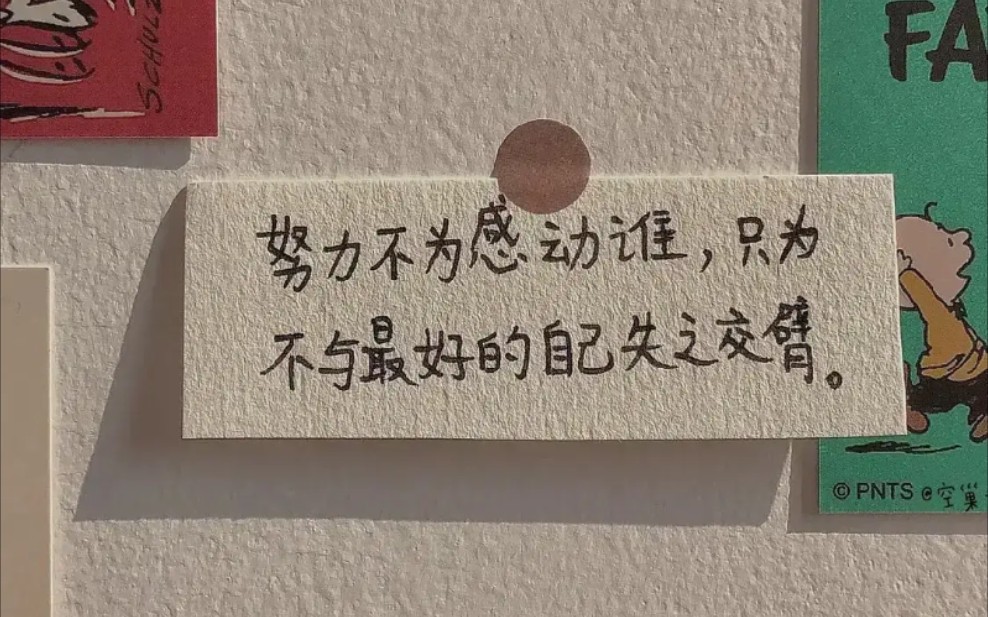 SCHULZ
FA
努力不为感动谁，只为
不与最好的自己失之交臂。
© PNTS @空巢